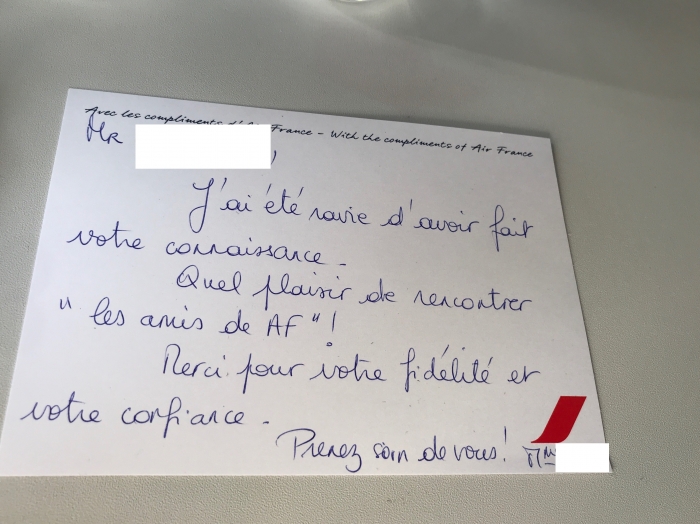 Avec les compliments d'Air France - With the compliments of Air France
Mr ,
J'ai été ravie d'avoir fait
votre connaissance.
Quel plaisir de rencontrer
"les amis de AF"!
Merci pour votre fidélité et
votre confiance.
Prenez soin de vous!